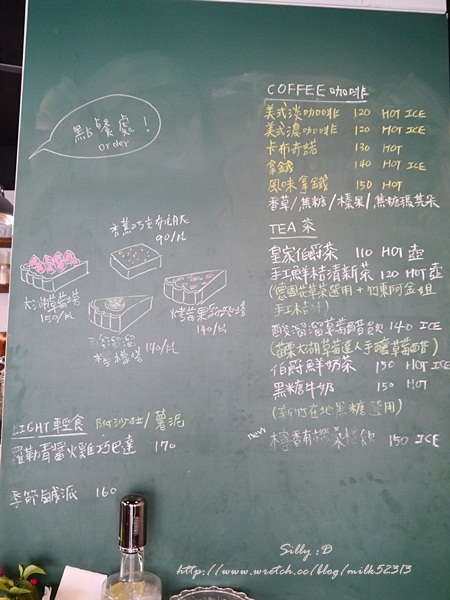 點餐處！
order
香蕉巧克力
90/片
大湖草莓塔
150/片
酸溜溜
檸檬塔
140/片
烤蘋果
140/片
LIGHT 輕食 阿沙力/薯泥
羅勒青醬火雞巧巴達 170
季節鹹派 160
COFFEE 咖啡
美式淡咖啡 120 HOT ICE
美式濃咖啡 120 HOT ICE
卡布奇諾 130 HOT
拿鐵 140 HOT ICE
風味拿鐵 150 HOT
香草/焦糖/榛果/焦糖瑪其朵
TEA 茶
皇家伯爵茶 110 HOT 壺
手工鮮桔清新茶 120 HOT 壺
(德國花草茶選用+竹東阿金姐
手工桔汁)
酸溜溜草莓醋飲 140 ICE
(苗栗大湖草莓達人手釀草莓醋)
伯爵鮮奶茶 150 HOT ICE
黑糖牛奶 150 HOT
(新竹在地黑糖選用)
new 檸香有機茶 飲 150 ICE
Silly :D
http://www.wretch.cc/blog/milk52313